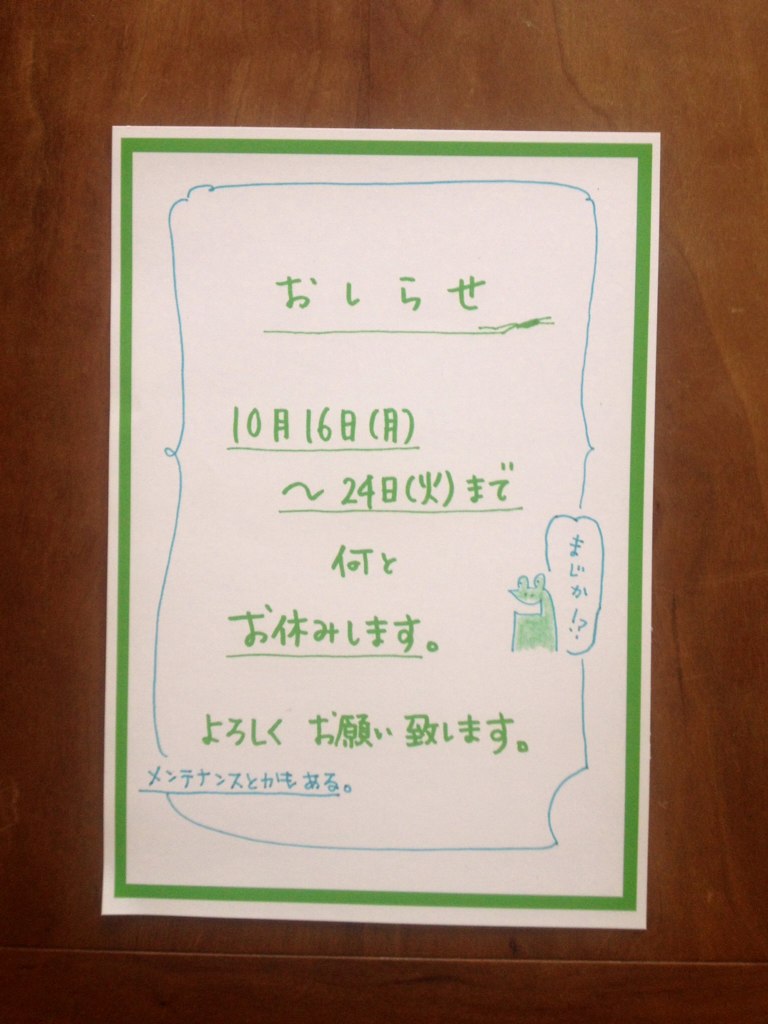 おしらせ
10月16日(月)
〜24日(火)まで
何と
お休みします。
まじか!?
よろしくお願い致します。
メンテナンスとかもある。